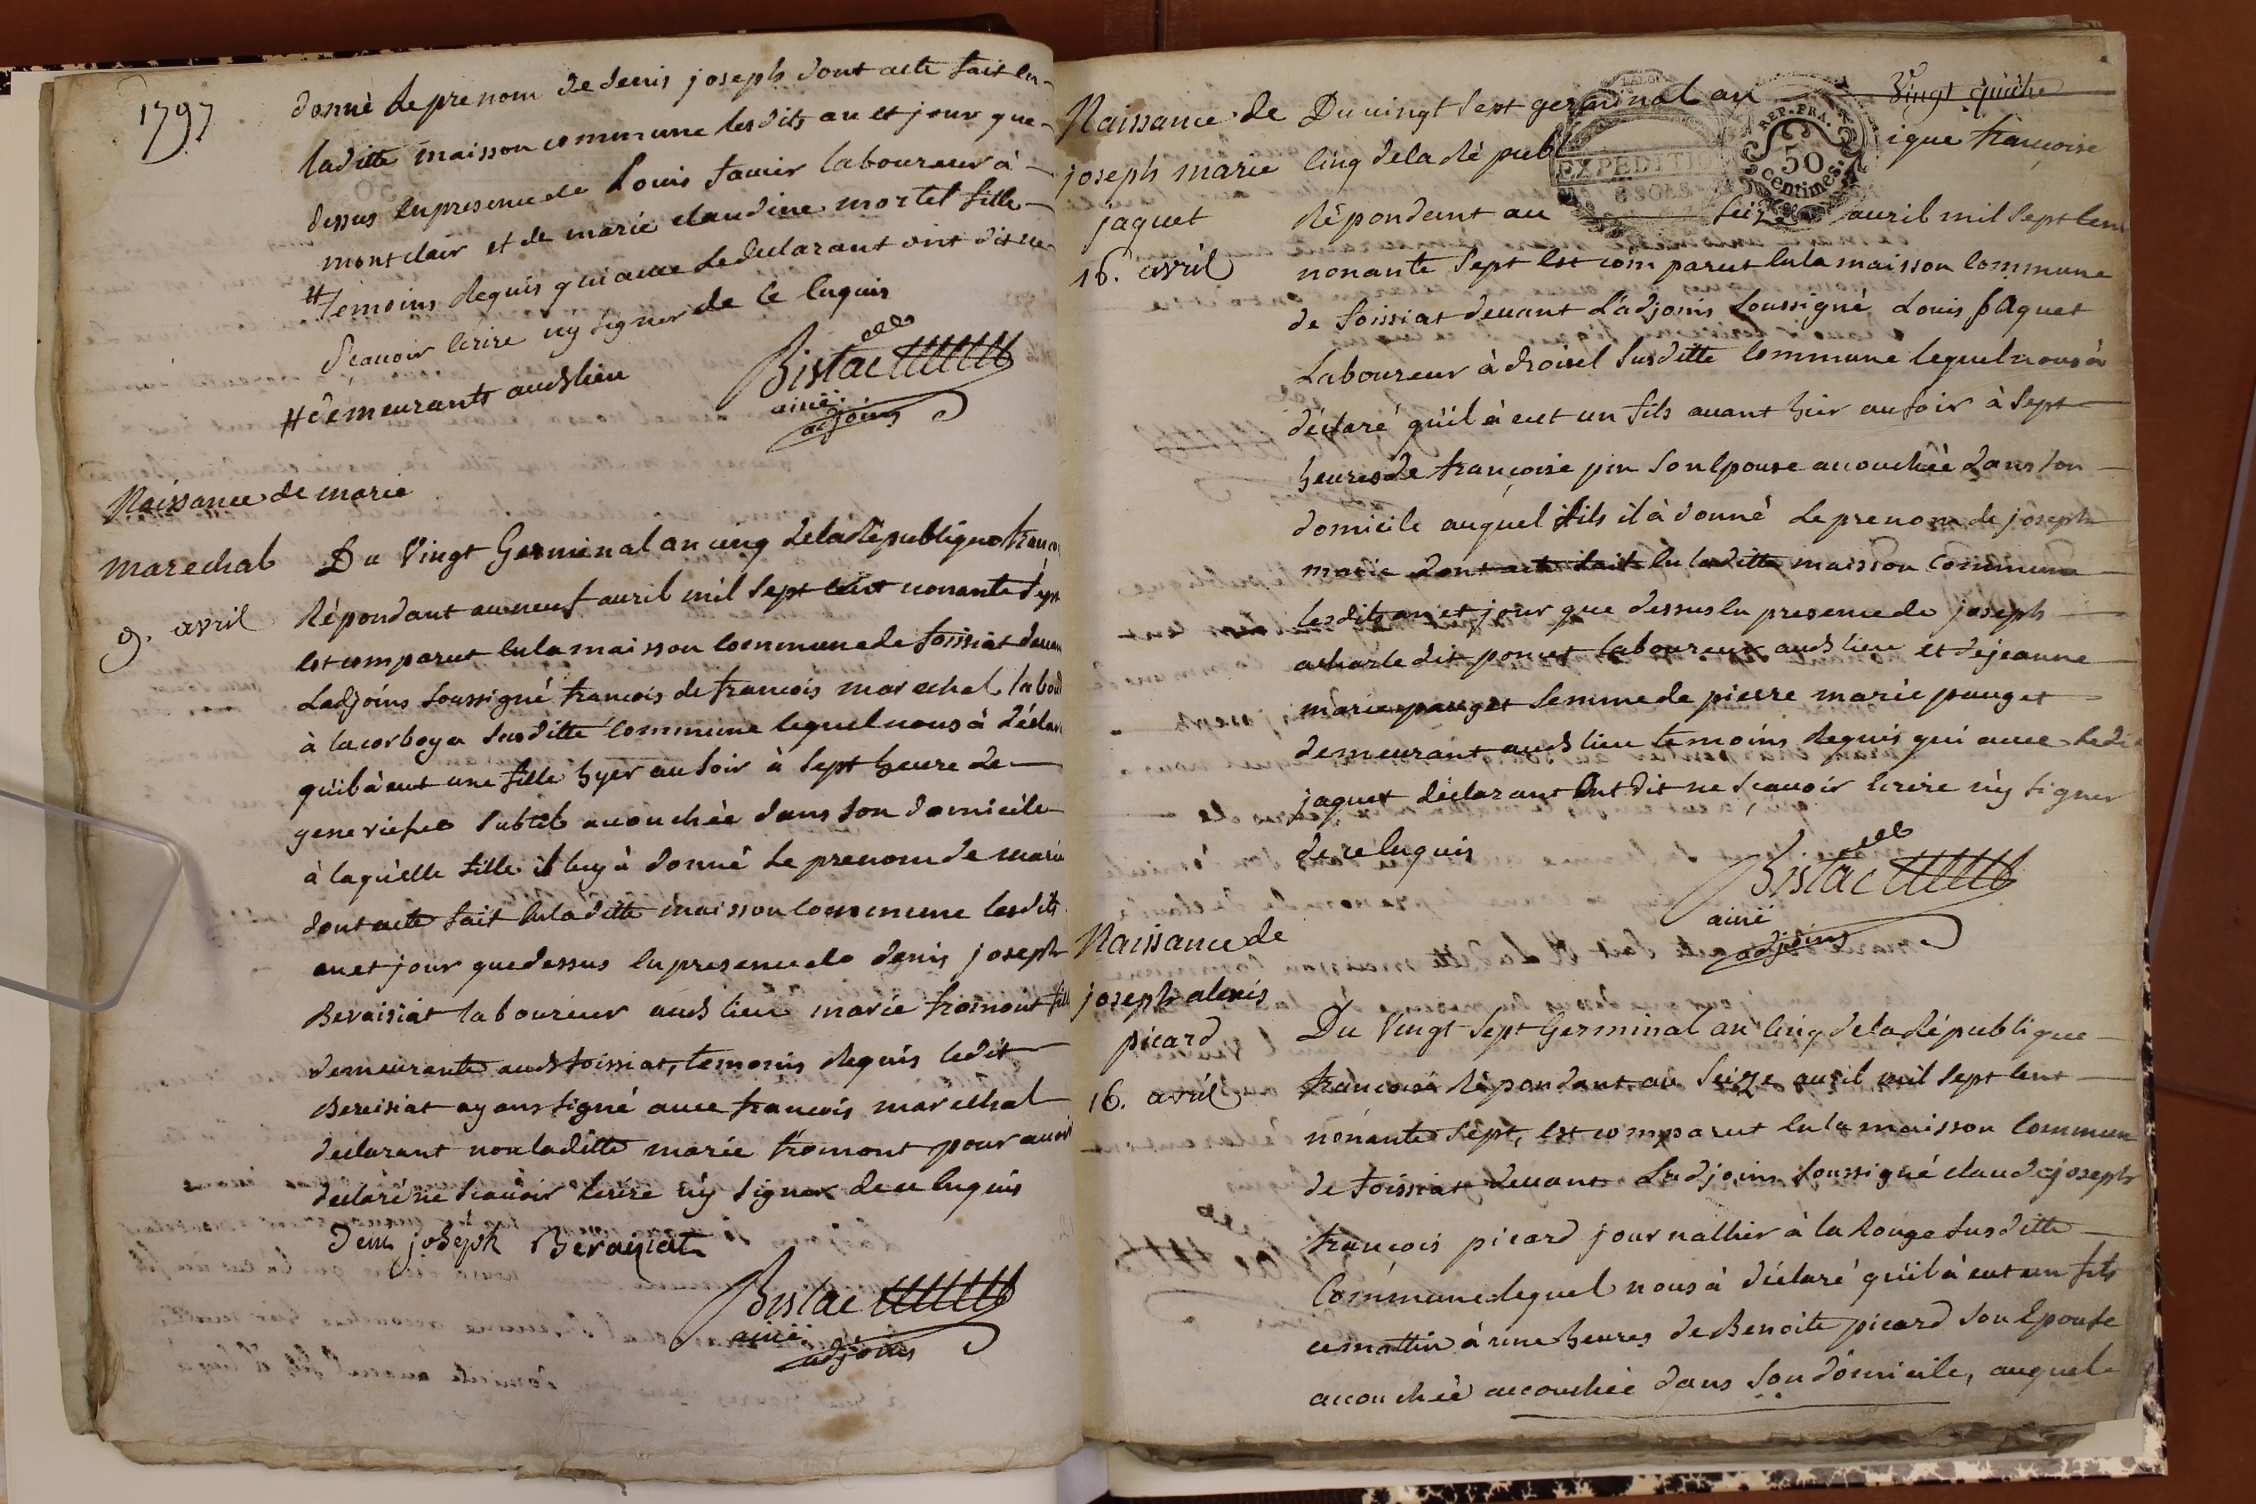 1797
donné le prenom de denis joseph dont acte fait en
laditte maisson commune lesdits an et jour que
dessus en presence de Louis favier laboureur à
montclair et de marie claudine mortel fille
# temoins requis qui avec le declarant ont dit ne
sçavoir ecrire ny signer de ce enquis
# demeurants audt lieu
Bislac
ainé
adjoins
Naissance de marie
marechal
9. avril
Du Vingt Germinal an cinq de la République franco
répondant au neuf avril mil sept cent nonante sept
est comparut en la maisson commune de foissiat devan
Ladjoins soussigné francois de francois marechal labou
à la corboya susditte commune lequel nous à déclar
qu'il à eut une fille hyer au soir à sept heure de
geneviefve Subtil accouchèe dans son domicile
à laquelle fille il luy à donné le prenom de marie
dont acte fait en laditte maisson commune lesdits
an et jour que dessus en presence de denis joseph
Beraisiat laboureur audt lieu marie fromont fill
demeurante audt foissiat, temoins requis ledit
Bereisiat ayant signé avec francois marechal
declarant non laditte marie fromont pour avoir
declaré ne scavoir ecrire ny signer de ce enquis
Deni joseph Beraisiat
Bislac
ainé
adjoins
Vingt quatre
Naissance de
joseph marie
jaquet
16. avril
EXPEDITIO
8 SOLS
REP. FRA.
50
centimes
Du vingt sept germinal an
cinq de la républ ique françoise
répondant au seize avril mil sept cen
nonante sept est comparut en la maisson commune
de foissiat devant L'adjoins soussigné Louis jaquet
Laboureur à droisel susditte commune lequel nous à
déclaré qu'il à eut un fils avant hier au soir à sept
heures de françoise pin son epouse accouchèe dans son
domicile auquel fils il à donné le prenom de joseph
marie dont acte fait en laditte maisson commune
lesdits an et jour que dessus en presence de joseph
acharle dit poncet laboureur audt lieu et de jeanne
marie pauget femme de pierre marie pauget
demeurant audt lieu temoins requis qui avec ledi
jaquet déclarant ont dit ne sçavoir ecrire ny signer
de ce enquis
Bislac
ainé
adjoins
Naissance de
joseph alexis
picard
16. avril
Du Vingt Sept Germinal an cinq de la République
francoise répondant au seize avril mil sept cent
nonante sept, est comparut en la maisson commun
de foissiat devant Ladjoins soussigné claude joseph
francois picard journallier à la Rouge susditte
Commune lequel nous à déclaré qu'il à eut un fils
ce mattin à une heures de Benoite picard son epouse
accouchèe accouchèe dans son domicile, auquel